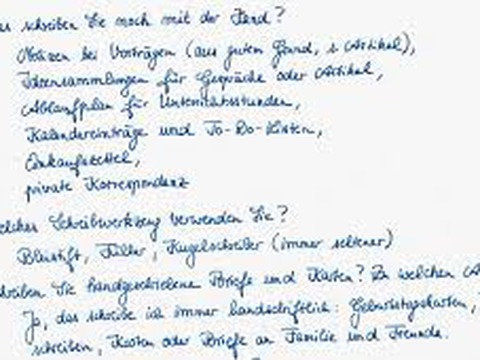 schreiben Sie noch mit der Hand?
Notizen bei Vorträgen (aus gutem Grund, s. Artikel),
Ideensammlungen für Gespräche oder Artikel,
Ablaufplan für Unterrichtsstunden,
Kalendereinträge und To-Do-Listen,
Einkaufszettel,
private Korrespondenz
elches Schreibwerkzeug verwenden Sie?
Bleistift, Füller, Kugelschreiber (immer seltener)
hreiben Sie handgeschriebene Briefe und Karten? Zu welchen
Ja, das schreibe ich immer handschriftlich: Geburtstagskarten,
schreiben, Karten oder Briefe an Familie und Freunde.